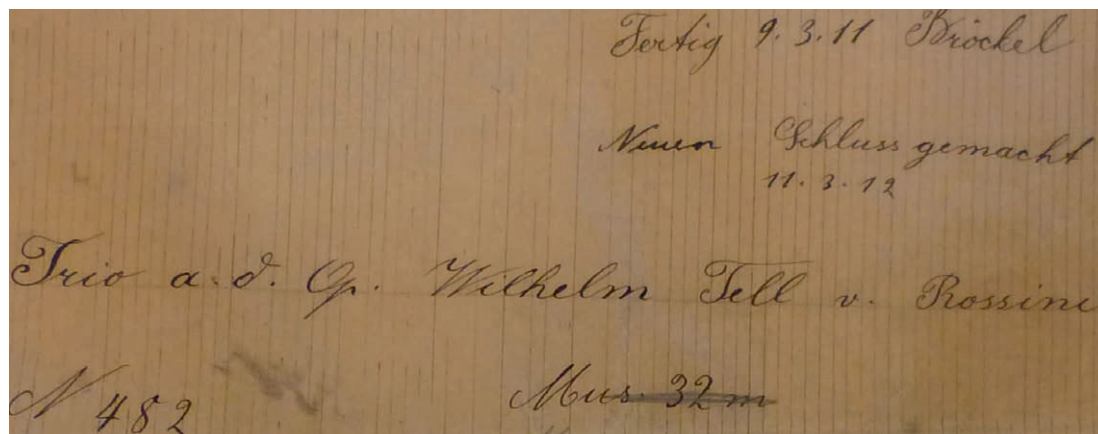 Fertig 9.3.11 Bröckel
Neuen Schluss gemacht
11.3.12
Trio a. d. Op. Wilhelm Tell v. Rossini
N 482 Mus. 32 m